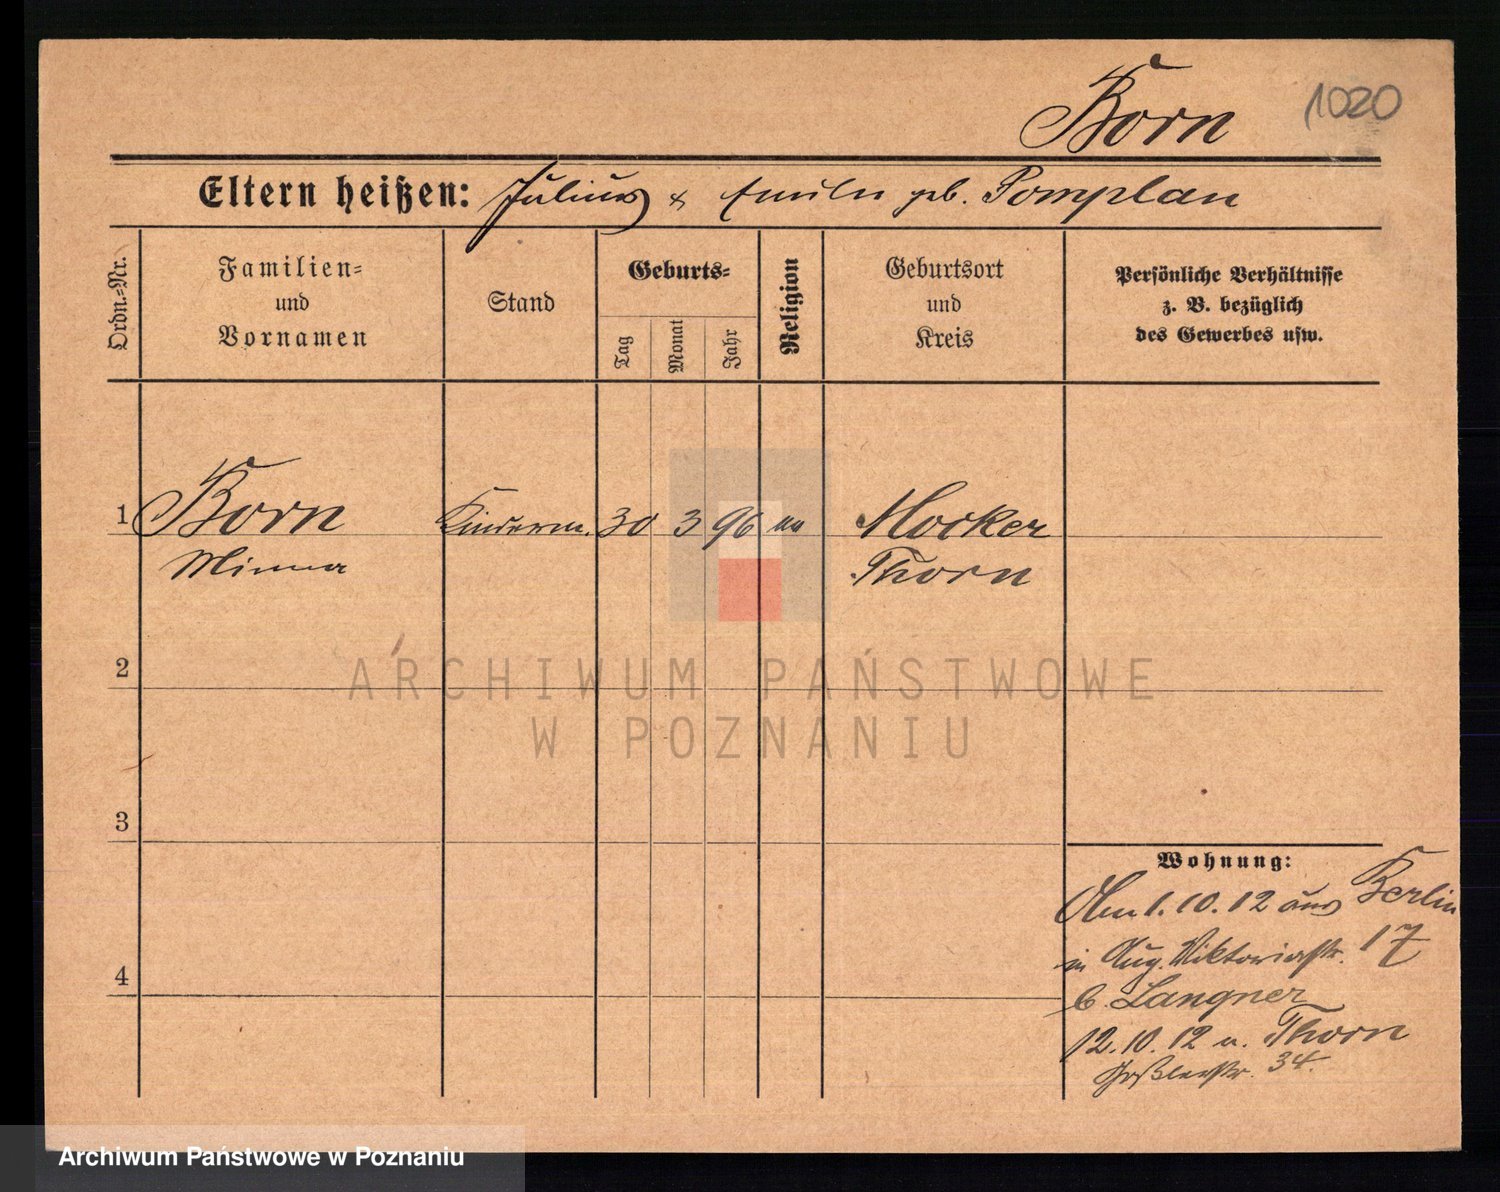 Born
1020
Eltern heißen: Julius & Emilie geb. Pomplan
Ordn.=Nr.
Familien=
und
Vornamen
Stand
Geburts=
Tag
Monat
Jahr
Religion
Geburtsort
und
Kreis
Persönliche Verhältnisse
z. B. bezüglich
des Gewerbes usw.
1 Born Kinderm. 30 3 96 Mocker
Minna Thorn
2
3
4
ARCHIWUM PAŃSTWOWE
W POZNANIU
Wohnung:
1.10.12 aus Berlin
in Aug. Viktoriastr. 17
b. Langner
12.10.12 n. Thorn
34.
Archiwum Państwowe w Poznaniu